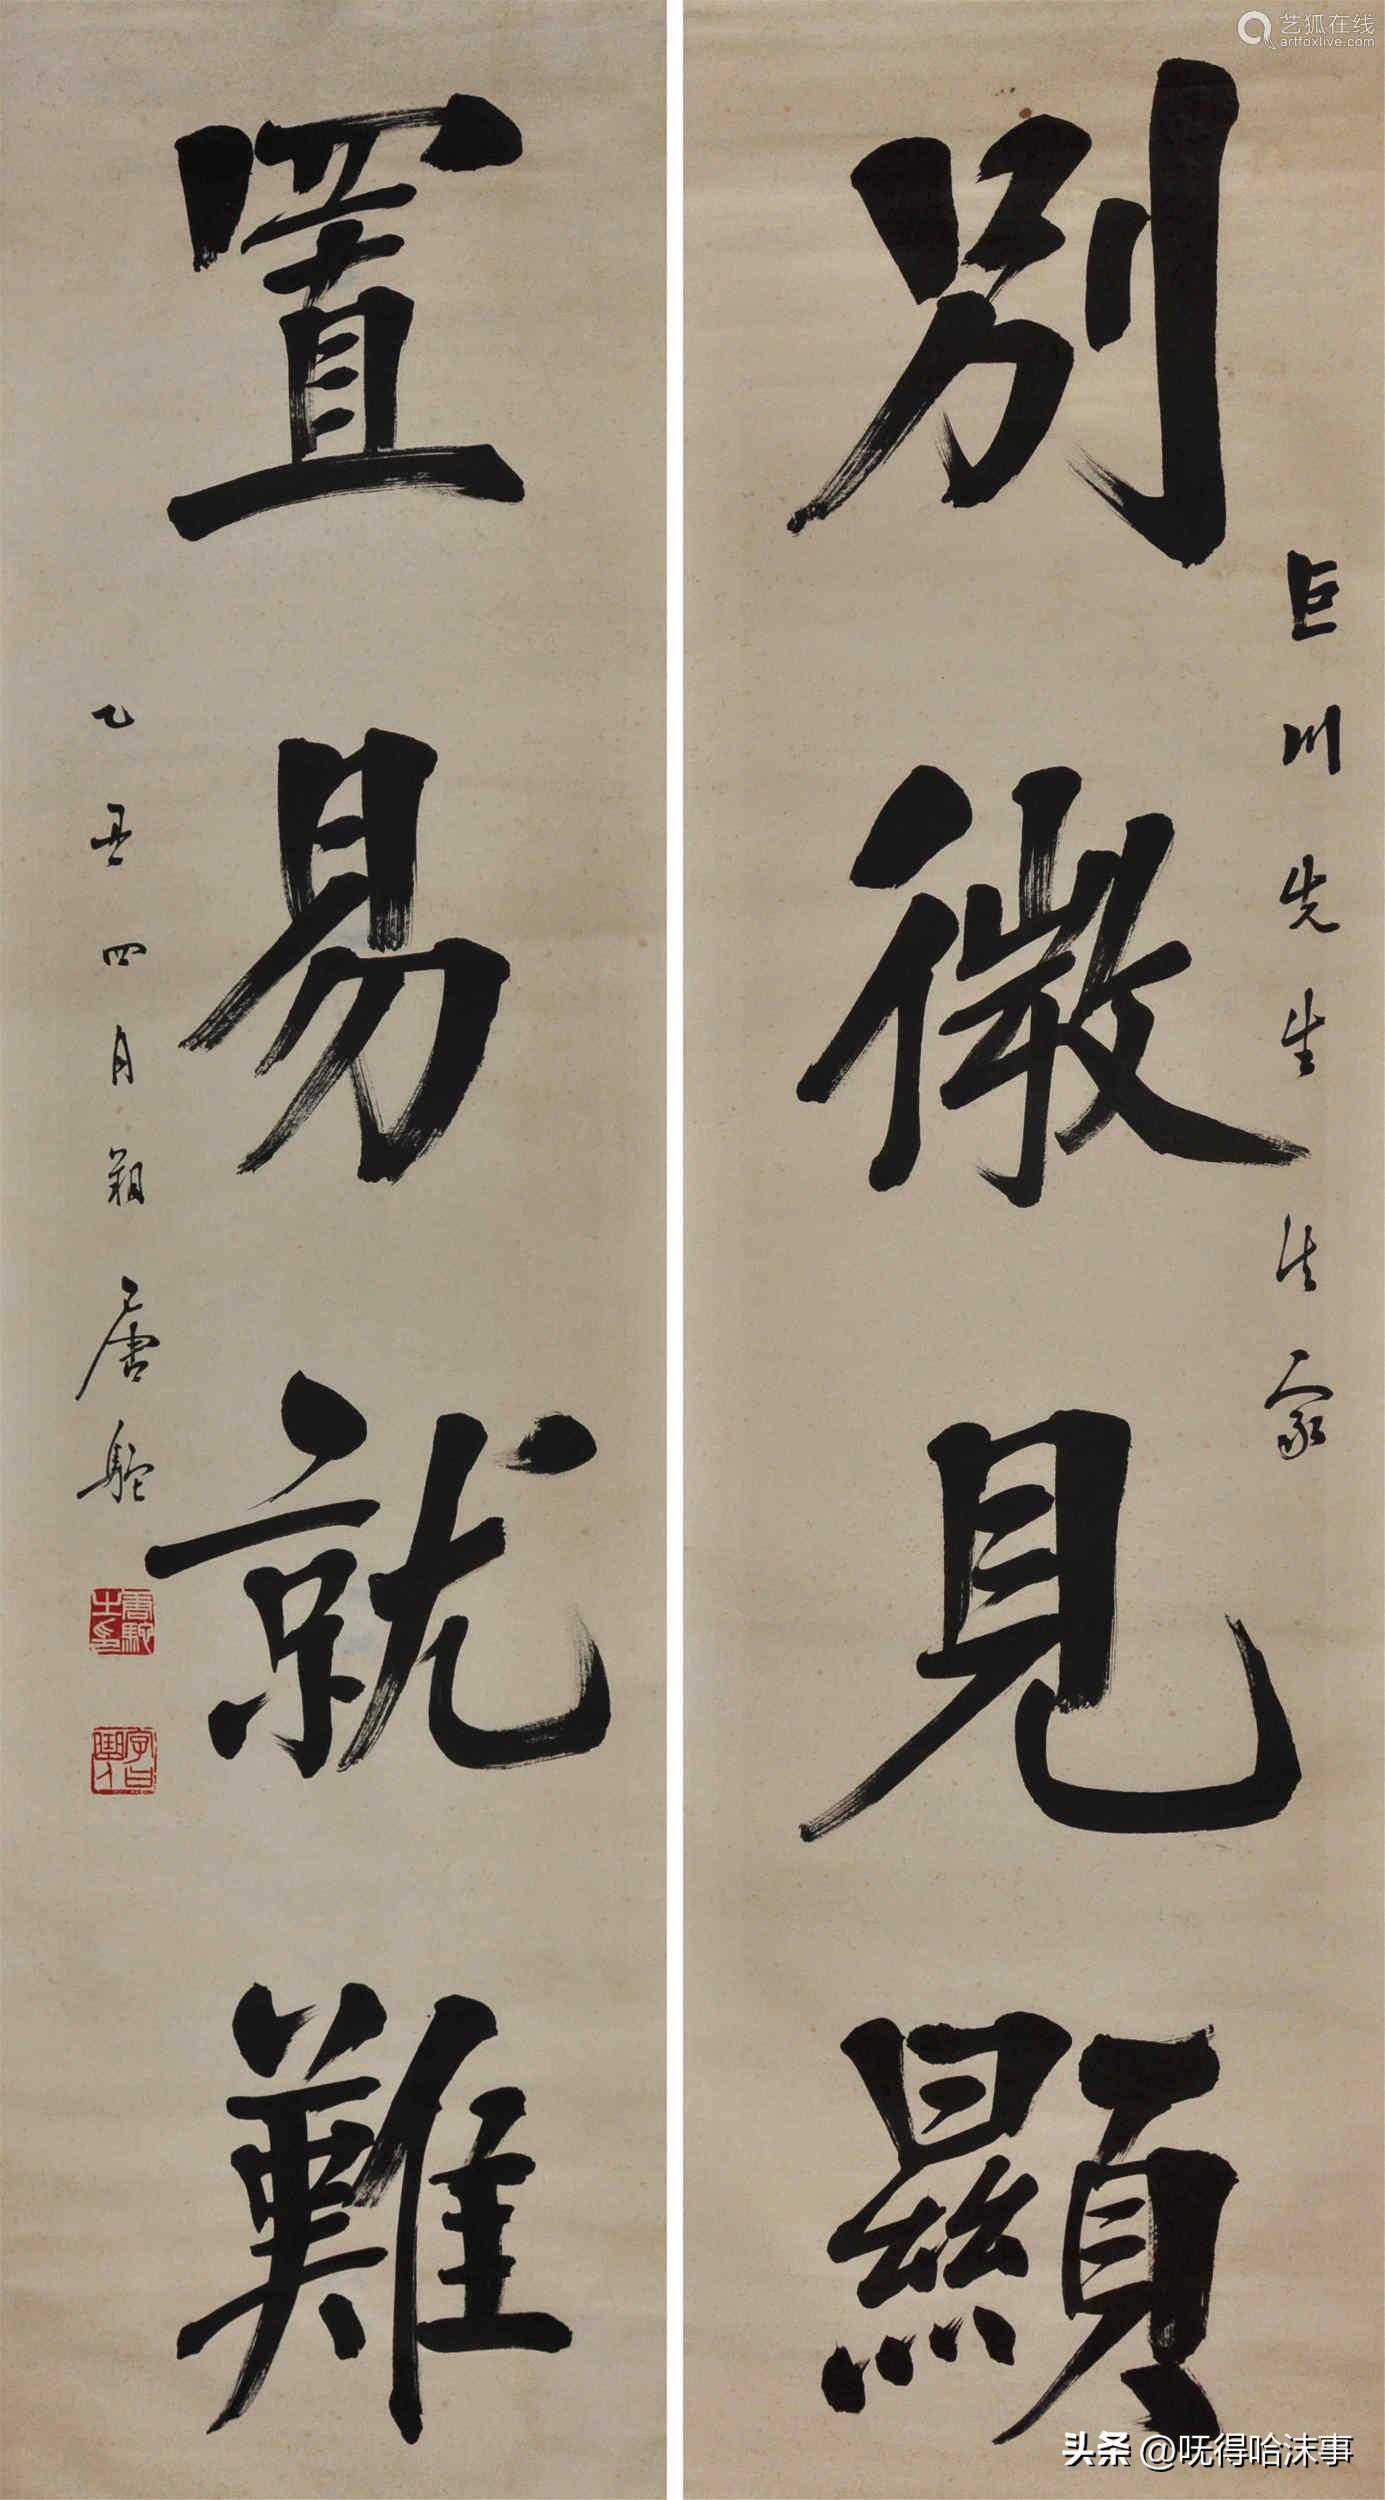 别微見顯
巨川先生法家
置易就難
乙丑四月朔 唐駝
唐駝之印
艺狐在线
artfoxlive.com
头条 @呒得哈沫事